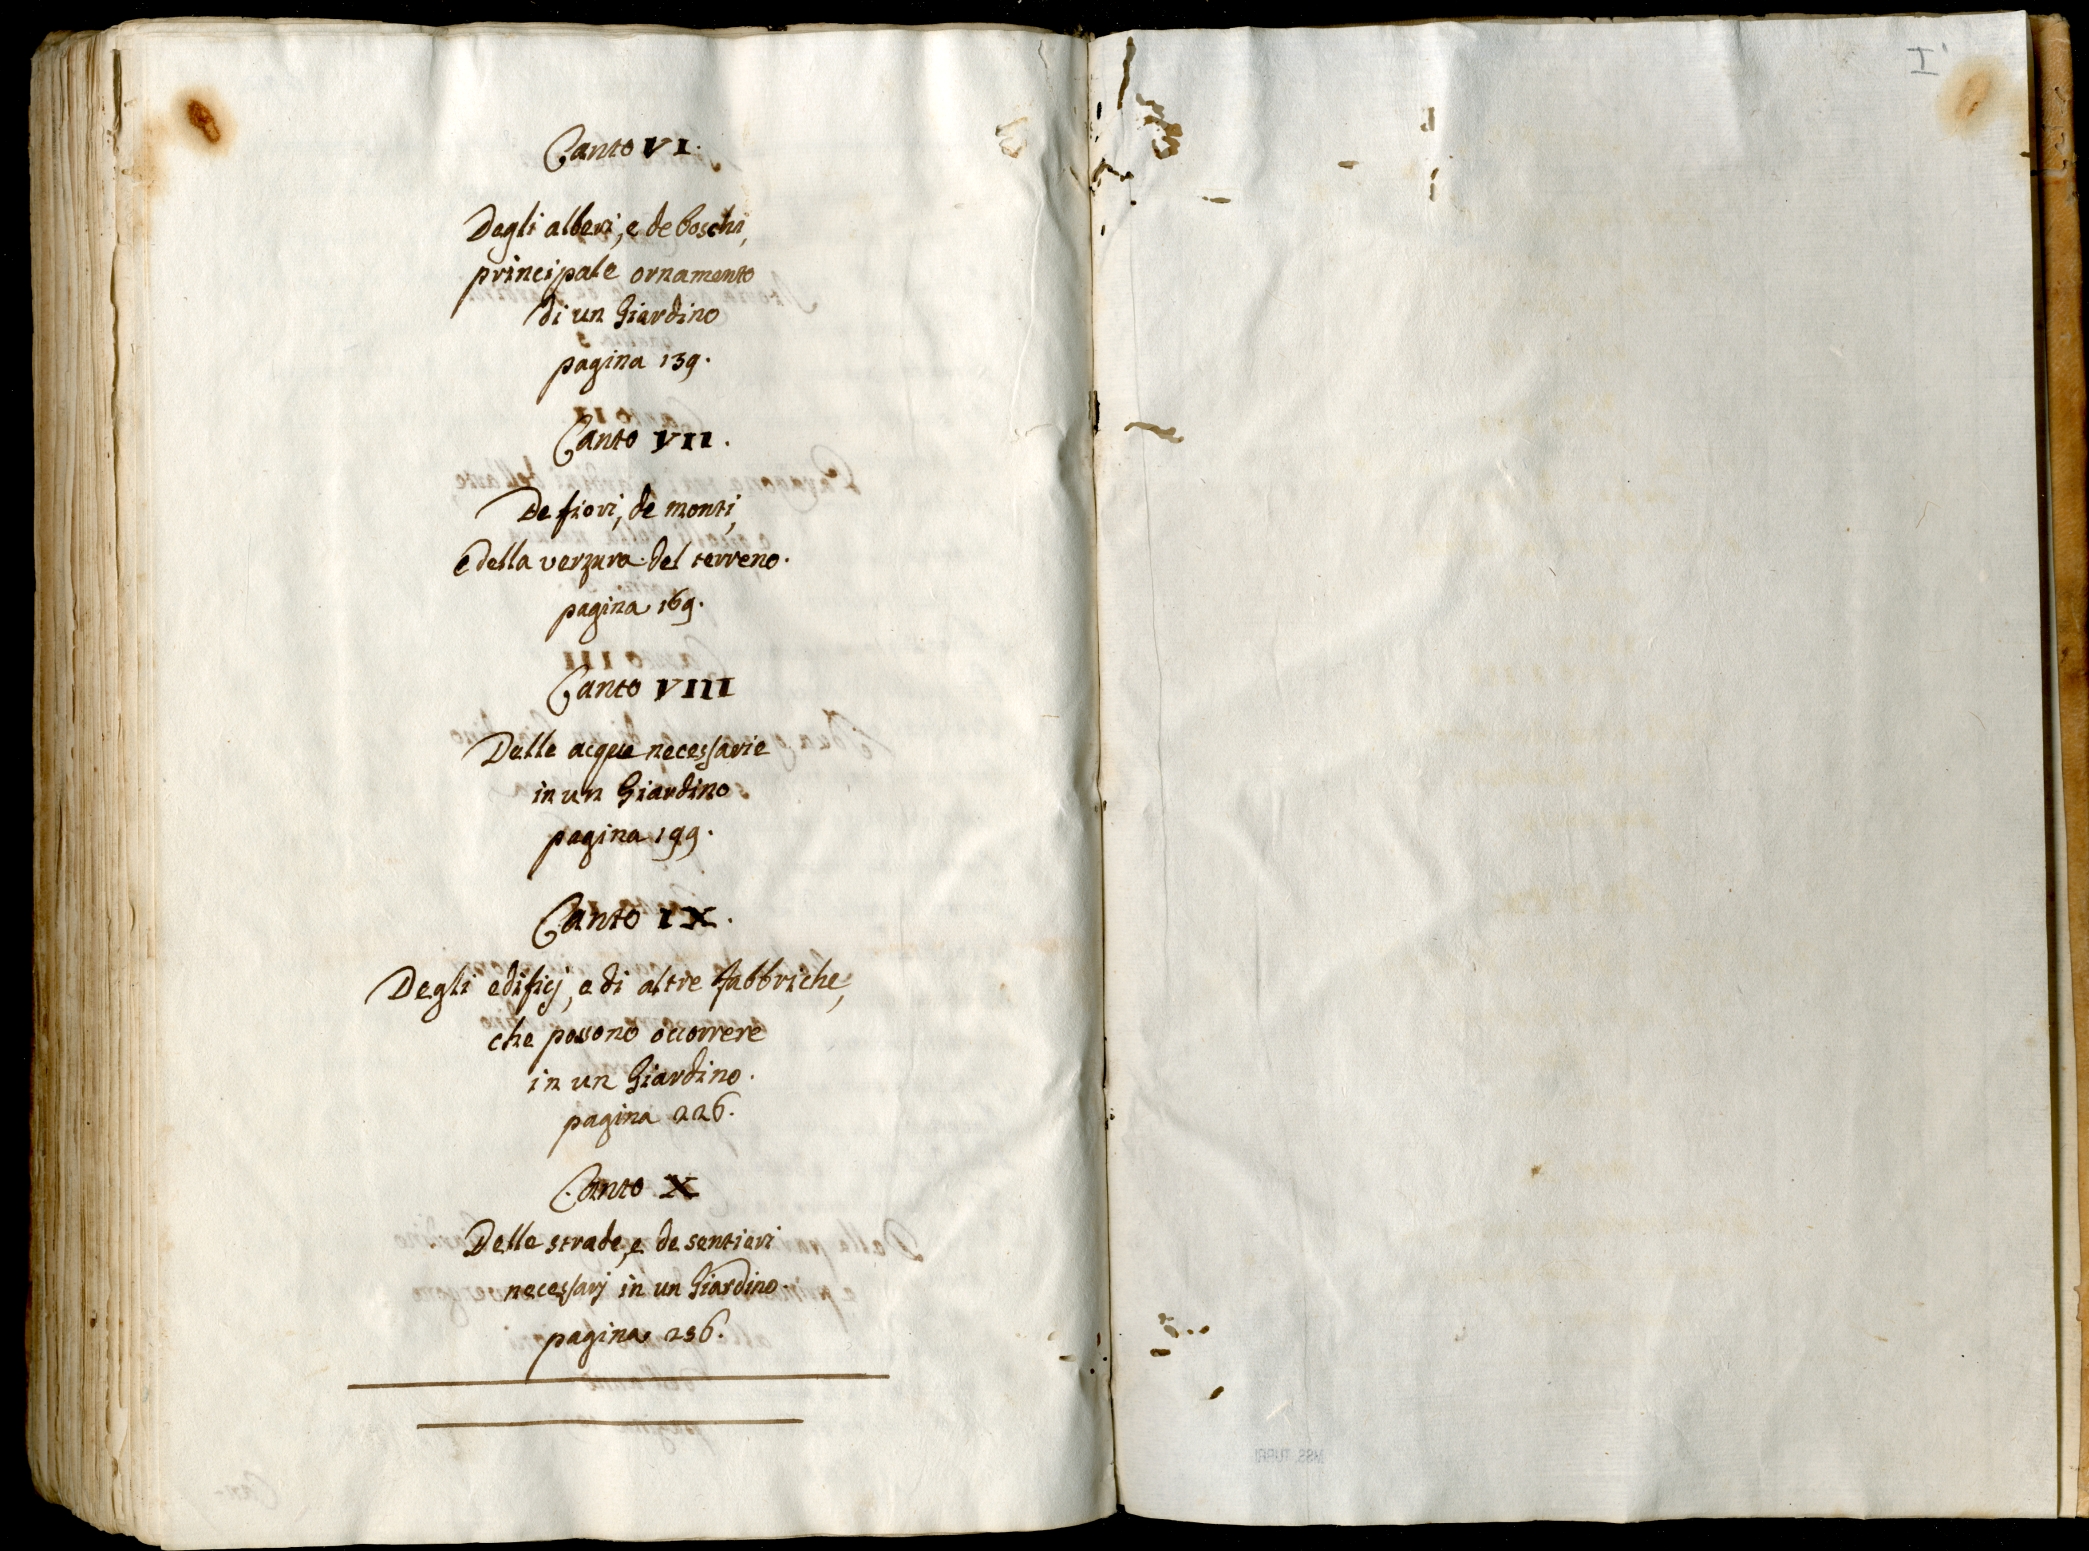 Canto VI.
Degli alberi, e de boschi,
principale ornamento
di un Giardino
pagina 139.
Canto VII.
De fiori, de monti,
e della verzura del terreno.
pagina 169.
Canto VIII
Delle acque necessarie
in un Giardino
pagina 199.
Canto IX.
Degli edificj, e di altre fabbriche,
che possono occorrere
in un Giardino.
pagina 226.
Canto X
Delle strade, e de sentieri
necessarj in un Giardino.
pagina 256.
I'